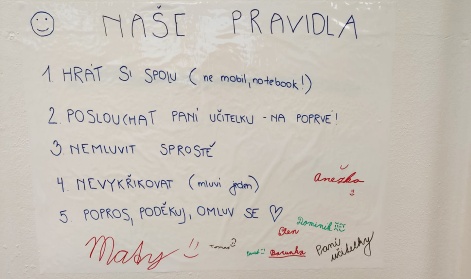 NAŠE PRAVIDLA
1. HRÁT SI SPOLU (ne mobil, notebook!)
2. POSLOUCHAT PANÍ UČITELKU - NA POPRVÉ!
3. NEMLUVIT SPROSTĚ
4. NEVYKŘIKOVAT (mluví jeden)
Anežka
5. POPROS, PODĚKUJ, OMLUV SE ♡
Dominik
Eten
Maty
Tomáš
Barunka
Paní učitelky